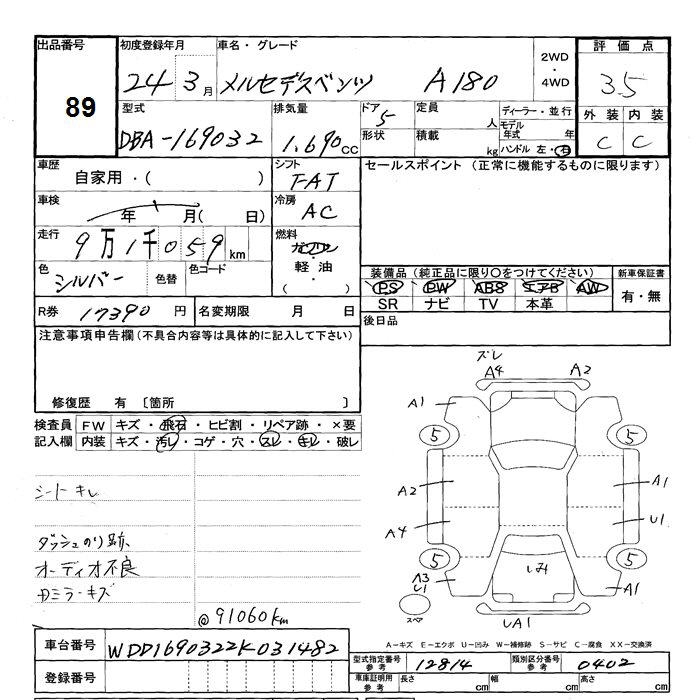 出品番号
89
初度登録年月
24 3月
車名・グレード
メルセデスベンツ A180
2WD
・
4WD
評価点
3.5
外装 内装
C C
型式
DBA-169032
排気量
1.690cc
ドア
5
形状
定員 人
積載 kg
ディーラー・並行
モデル
年式 年
ハンドル 左・右
車歴
自家用・( )
シフト
FAT
セールスポイント (正常に機能するものに限ります)
車検
年 月( 日)
冷房
AC
走行
9万1千059km
燃料
ガソリン
・
軽油
・
( )
色
シルバー
色替
色コード
装備品(純正品に限り○をつけてください)
PS PW ABS エアB AW
SR ナビ TV 本革
新車保証書
有・無
R券 17390円
名変期限 月 日
後日品
注意事項申告欄(不具合内容等は具体的に記入して下さい)
修復歴 有〔箇所 〕
検査員
記入欄
FW キズ・飛石・ヒビ割・リペア跡・×要
内装 キズ・汚レ・コゲ・穴・スレ・キレ・破レ
シートキレ
ダッシュのり跡
オーディオ不良
Rミラーキズ
@91060km
ズレ
A4 A2
A1
5 5
A2 A1
A4 U1
5 5
A3
U1
しみ
A1
スペア
UA1
A-キズ E-エクボ U-凹み W-補修跡 S-サビ C-腐食 XX-交換済
車台番号 WDD1690322K031482
登録番号
型式指定番号
参考
12814
類別区分番号
参考
0402
車庫証明用
参考
長さ cm 幅 cm 高さ cm